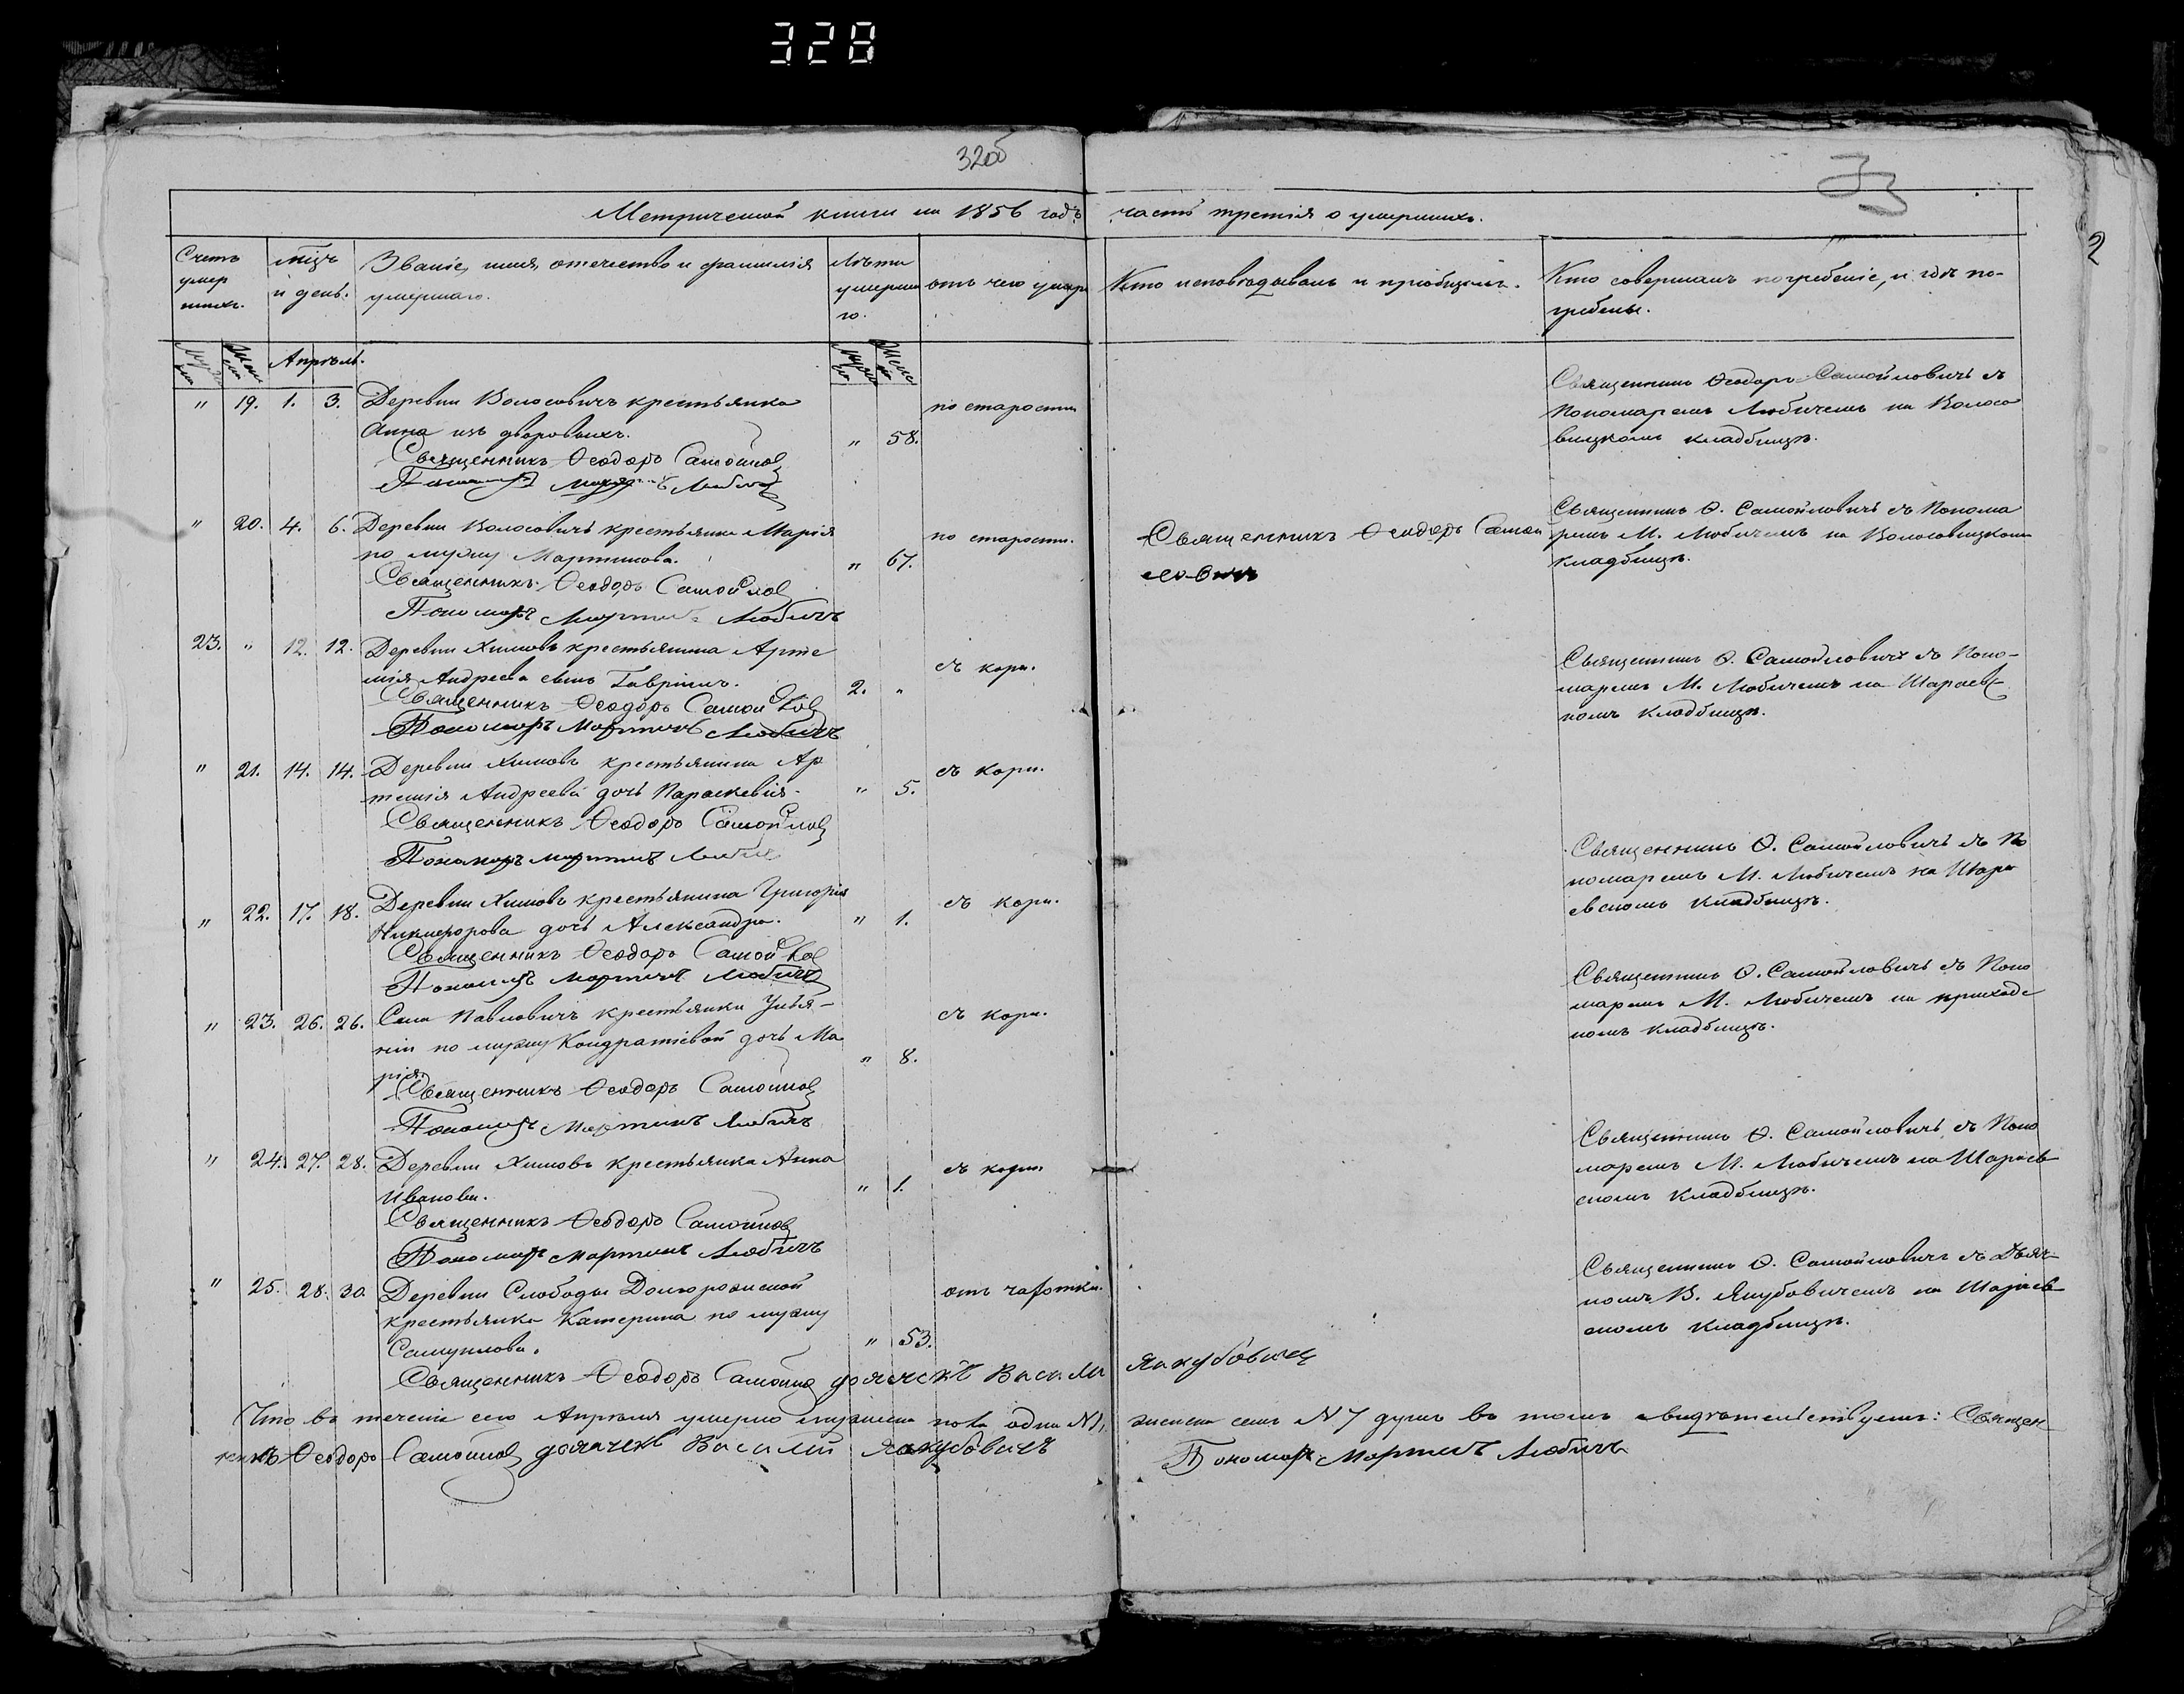 328
32об
2
Метрической книги на 1856 годъ часть третія о умершихъ.
Счетъ умер шихъ.
мѣцъ и день.
Званіе, имя, отчество и фамилія умершаго.
Лѣта умерша го.
отъ чего умеръ
Кто исповѣдывалъ и пріобщалъ.
Кто совершалъ погребеніе, и гдѣ по-
гребены.
Апрѣль.
" 19. 1. 3. Деревни Волосовичъ крестьянка
Анна изъ дворовыхъ. " 58. по старости
Священникъ Ѳеодоръ Самойлов
Священникъ Ѳеодоръ Самойловичъ съ
Пономаремъ Любичемъ на Волосо
вицкомъ кладбищѣ.
" 20. 4. 6. Деревни Волосовичъ крестьянка Марія
по мужу Мартинова. " 67. по старости.
Священникъ Ѳеодоръ Самойлов
Пономарь Мартинъ Любичъ
Священникъ Ѳеодоръ Самой
ловичъ
Священникъ Ѳ. Самойловичъ съ Понома
ремъ М. Любичемъ на Волосовицкомъ
кладбищѣ.
23. " 12. 12. Деревни Химовъ крестьянина Арте
мія Андреева сынъ Гавріилъ. 2. " съ кори.
Священникъ Ѳеодоръ Самойлов
Пономарь Мартинъ Любичъ
Священникъ Ѳ. Самойловичъ съ Поно-
маремъ М. Любичемъ на Шараевс
комъ кладбищѣ.
" 21. 14. 14. Деревни Химовъ крестьянина Ар
темія Андреева дочь Параскевія. " 5. съ кори.
Священникъ Ѳеодоръ Самойлов
Пономарь Мартинъ Любичъ
Священникъ Ѳ. Самойловичъ съ По
номаремъ М. Любичемъ на Шара
евскомъ кладбищѣ.
" 22. 17. 18. Деревни Химовъ крестьянина Григорія
Никифорова дочь Александра. " 1. съ кори.
Священникъ Ѳеодоръ Самойлов
Пономарь Мартинъ Любичъ
Священникъ Ѳ. Самойловичъ съ Поно
маремъ М. Любичемъ на приходс
комъ кладбищѣ.
" 23. 26. 26. Села Павловичъ крестьянки Улья-
ніи по мужу Кондратіевой дочь Ма
рія. " 8. съ кори.
Священникъ Ѳеодоръ Самойлов
Пономарь Мартинъ Любичъ
Священникъ Ѳ. Самойловичъ съ Поно
маремъ М. Любичемъ на Шараев
скомъ кладбищѣ.
" 24. 27. 28. Деревни Химовъ крестьянка Анна
Иванова. " 1. съ кори.
Священникъ Ѳеодоръ Самойлов
Пономарь Мартинъ Любичъ
" 25. 28. 30. Деревни Слободы Долгорожской
крестьянка Катерина по мужу
Самуилова. " 53. отъ чахотки.
Священникъ Ѳ. Самойловичъ съ Дьяч
комъ В. Якубовичемъ на Шараев
скомъ кладбищѣ.
Священникъ Ѳеодоръ Самойлов дьячекъ Василій Якубовичъ
Что въ теченіи сего Апрѣля умерло мужеска пола одна N1, женска семь N7 душъ въ томъ свидѣтельствуемъ: Священ
никъ Ѳеодоръ Самойлов дьячекъ Василій Якубовичъ Пономарь Мартинъ Любичъ